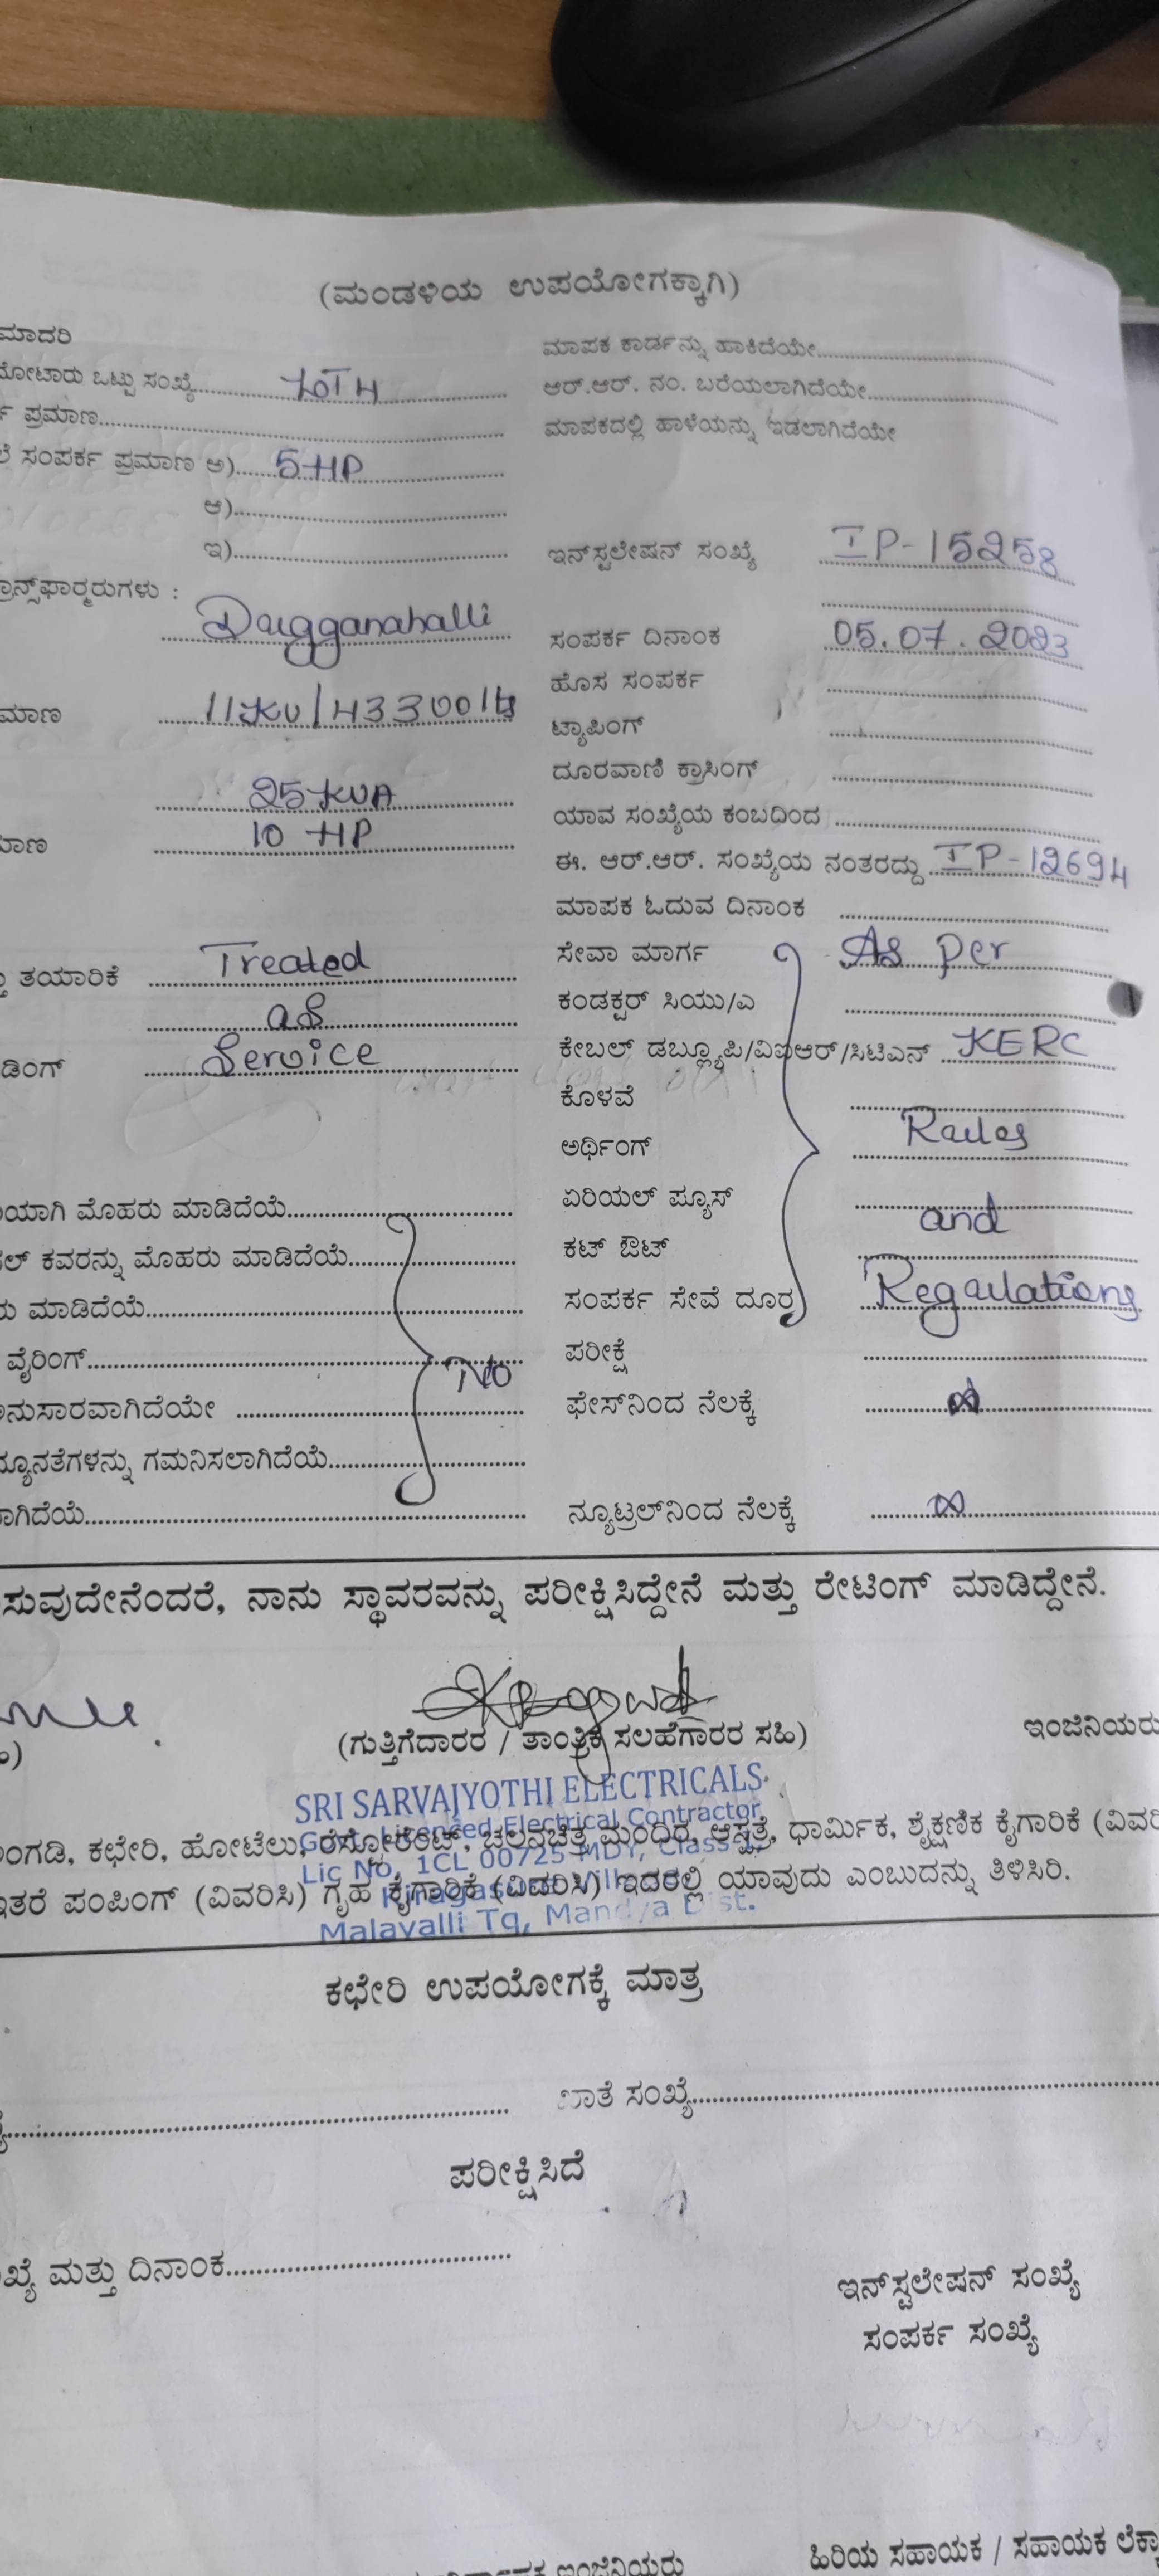 (ಮಂಡಳಿಯ ಉಪಯೋಗಕ್ಕಾಗಿ)
ಮಾದರಿ
ಮಾಪಕ ಕಾರ್ಡನ್ನು ಹಾಕಿದೆಯೇ
ಮೋಟಾರು ಒಟ್ಟು ಸಂಖ್ಯೆ
ಆರ್.ಆರ್. ನಂ. ಬರೆಯಲಾಗಿದೆಯೇ
ಪ್ರಮಾಣ
ಮಾಪಕದಲ್ಲಿ ಹಾಳೆಯನ್ನು ಇಡಲಾಗಿದೆಯೇ
ಸಂಪರ್ಕ ಪ್ರಮಾಣ ಅ) 5 HP
ಆ)
ಇ)
ಇನ್‌ಸ್ಟಲೇಷನ್ ಸಂಖ್ಯೆ IP-15258
ಟ್ರಾನ್ಸ್‌ಫಾರ್ಮರುಗಳು :
Dugganahalli
ಸಂಪರ್ಕ ದಿನಾಂಕ 05.07.2023
ಹೊಸ ಸಂಪರ್ಕ
ಮಾಣ 11KV/433
ಟ್ಯಾಪಿಂಗ್
ದೂರವಾಣಿ ಕ್ರಾಸಿಂಗ್
25 KVA
ಯಾವ ಸಂಖ್ಯೆಯ ಕಂಬದಿಂದ
ಮಾಣ 10 HP
ಈ. ಆರ್.ಆರ್. ಸಂಖ್ಯೆಯ ನಂತರದ್ದು IP-12694
ಮಾಪಕ ಓದುವ ದಿನಾಂಕ
ತಯಾರಿಕೆ Treated
ಸೇವಾ ಮಾರ್ಗ As per
as
ಕಂಡಕ್ಟರ್ ಸಿಯು/ಎ
ಡಿಂಗ್ Service
ಕೇಬಲ್ ಡಬ್ಲ್ಯೂಪಿ/ವಿಐಆರ್/ಸಿಟಿಎನ್ KERC
ಕೊಳವೆ
ಅರ್ಥಿಂಗ್ Rules
ಯಾಗಿ ಮೊಹರು ಮಾಡಿದೆಯೆ
ಏರಿಯಲ್ ಫ್ಯೂಸ್
and
ಕವರನ್ನು ಮೊಹರು ಮಾಡಿದೆಯೆ
ಕಟ್ ಔಟ್
ಮಾಡಿದೆಯೆ
ಸಂಪರ್ಕ ಸೇವೆ ದೂರ Regulations
ವೈರಿಂಗ್ No
ಪರೀಕ್ಷೆ
ಅನುಸಾರವಾಗಿದೆಯೇ
ಫೇಸ್‌ನಿಂದ ನೆಲಕ್ಕೆ ∞
ನ್ಯೂನತೆಗಳನ್ನು ಗಮನಿಸಲಾಗಿದೆಯೆ
ಾಗಿದೆಯೆ
ನ್ಯೂಟ್ರಲ್‌ನಿಂದ ನೆಲಕ್ಕೆ ∞
ಸುವುದೇನೆಂದರೆ, ನಾನು ಸ್ಥಾವರವನ್ನು ಪರೀಕ್ಷಿಸಿದ್ದೇನೆ ಮತ್ತು ರೇಟಿಂಗ್ ಮಾಡಿದ್ದೇನೆ.
(ಗುತ್ತಿಗೆದಾರರ / ತಾಂತ್ರಿಕ ಸಲಹೆಗಾರರ ಸಹಿ)
ಇಂಜಿನಿಯರು
SRI SARVAJYOTHI ELECTRICALS
Govt. Licenced Electrical Contractor
ಅಂಗಡಿ, ಕಛೇರಿ, ಹೋಟೆಲು, ರೆಸ್ಟೋರೆಂಟ್, ಚಲನಚಿತ್ರ ಮಂದಿರ, ಆಸ್ಪತ್ರೆ, ಧಾರ್ಮಿಕ, ಶೈಕ್ಷಣಿಕ ಕೈಗಾರಿಕೆ
Lic No. 1CL 00725 MDY, Class
ಇತರೆ ಪಂಪಿಂಗ್ (ವಿವರಿಸಿ) ಗೃಹ ಕೈಗಾರಿಕೆ (ವಿವರಿಸಿ) ಇದರಲ್ಲಿ ಯಾವುದು ಎಂಬುದನ್ನು ತಿಳಿಸಿರಿ.
Malavalli Tq, Mandya Dist.
ಕಛೇರಿ ಉಪಯೋಗಕ್ಕೆ ಮಾತ್ರ
ಖಾತೆ ಸಂಖ್ಯೆ
ಪರೀಕ್ಷಿಸಿದೆ
ಮತ್ತು ದಿನಾಂಕ
ಇನ್‌ಸ್ಟಲೇಷನ್ ಸಂಖ್ಯೆ
ಸಂಪರ್ಕ ಸಂಖ್ಯೆ
ಇಂಜಿನಿಯರು
ಹಿರಿಯ ಸಹಾಯಕ / ಸಹಾಯಕ